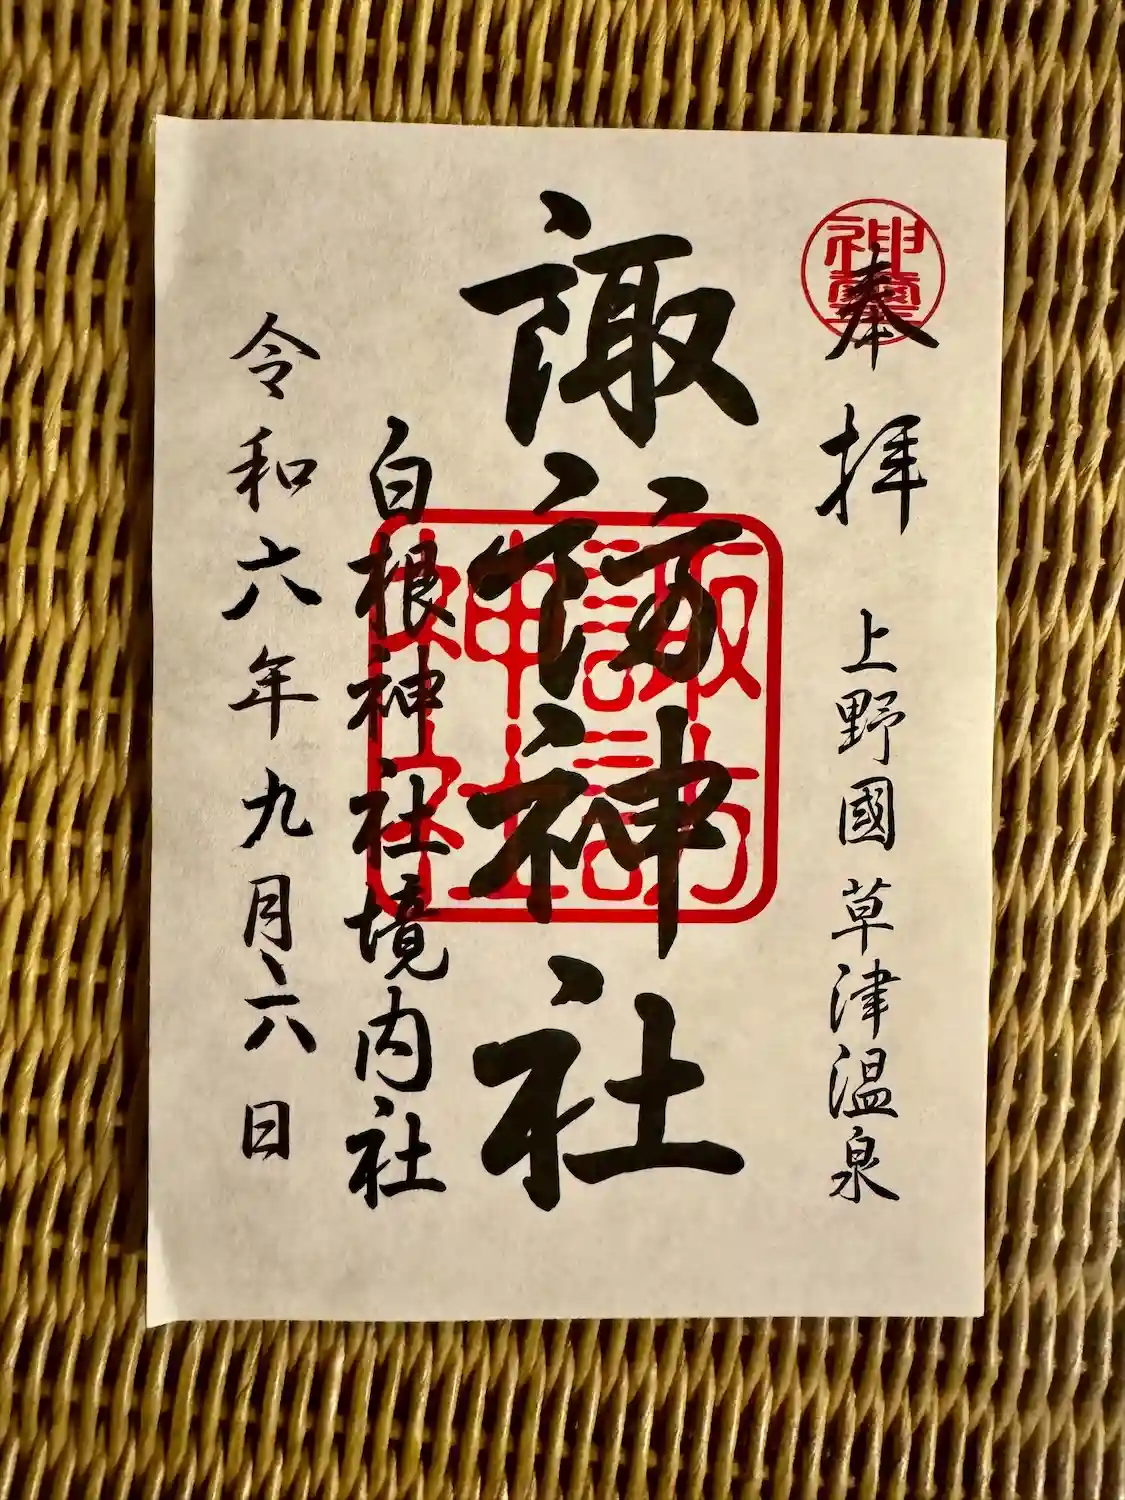 奉拝
上野國草津温泉
諏訪神社
白根神社境内社
令和六年九月六日
神璽
諏訪神社